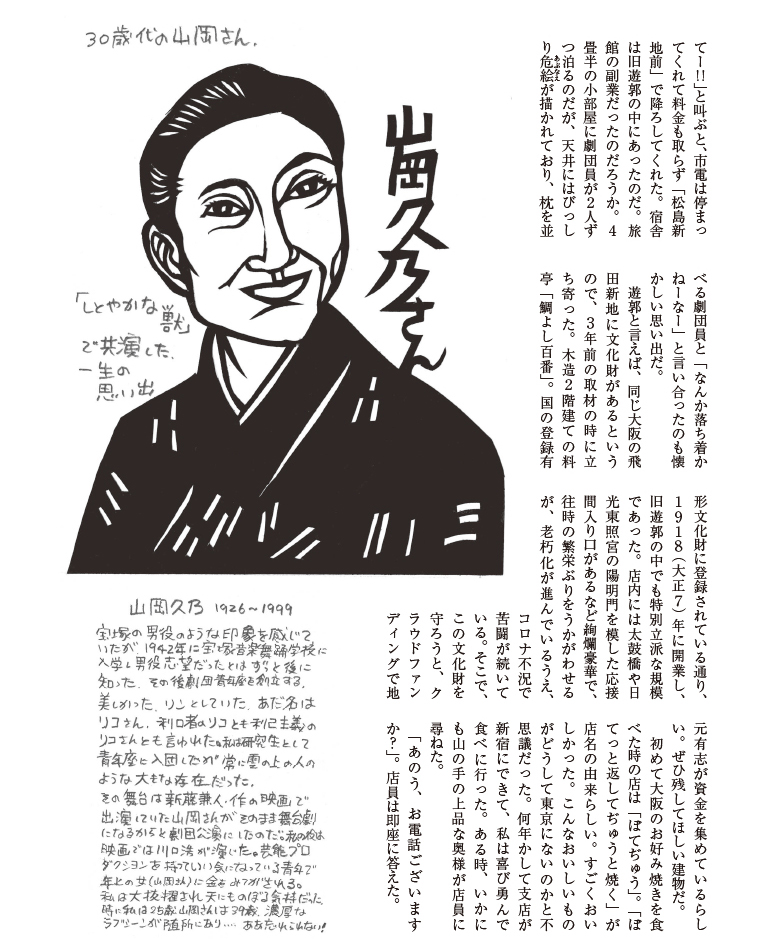 てー!!」と叫ぶと、市電は停まっ
てくれて料金も取らず「松島新
地前」で降ろしてくれた。宿舎
は旧遊郭の中にあったのだ。旅
館の副業だったのだろうか。4
畳半の小部屋に劇団員が2人ず
つ泊るのだが、天井にはびっし
り危絵が描かれており、枕を並
べる劇団員と「なんか落ち着か
ねーなー」と言い合ったのも懐
かしい思い出だ。
遊郭と言えば、同じ大阪の飛
田新地に文化財があるという
ので、3年前の取材の時に立
ち寄った。木造2階建ての料
亭「鯛よし百番」。国の登録有
形文化財に登録されている通り、
1918(大正7)年に開業し、
旧遊郭の中でも特別立派な規模
であった。店内には太鼓橋や日
光東照宮の陽明門を模した応接
間入り口があるなど絢爛豪華で、
往時の繁栄ぶりをうかがわせる
が、老朽化が進んでいるうえ、
コロナ不況で
苦闘が続いて
いる。そこで、
この文化財を
守ろうと、ク
ラウドファン
ディングで地
元有志が資金を集めているらし
い。ぜひ残してほしい建物だ。
初めて大阪のお好み焼きを食
べた時の店は「ぼてぢゅう」。「ぼ
てっと返してぢゅうと焼く」が
店名の由来らしい。すごくおい
しかった。こんなおいしいもの
がどうして東京にないのかと不
思議だった。何年かして支店が
新宿にできて、私は喜び勇んで
食べに行った。ある時、いかに
も山の手の上品な奥様が店員に
尋ねた。
「あのう、お電話ございます
か?」。店員は即座に答えた。
30歳代の山岡さん.
山岡久乃さん
「しとやかな
獣」
で共演した、
一生の
思い出
山岡久乃 1926〜1999
宝塚の男役のような印象を感じて
いたが1942年に宝塚音楽舞踊学校に
入学し男役志望だったとは ずっと後に
知った. その後劇団青年座を創立する.
美しかった. リンとしていた. あだ名は
リコさん. 利口者のリコとも利己主義の
リコさんとも言われた。私は研究生として
青年座に入団したが 常に雲の上の人の
ような大きな存在だった.
その舞台は新藤兼人・作の映画で
出演していた山岡さんがそのまま舞台劇
になるからと劇団公演にしたのだ。私の役は
映画では川口浩が演じた。芸能プロ
ダクションを持っていい気になっている青年で
年上の女(山岡さん)に金を
私は大抜擢され天にものぼる気持だった.
時に私は25歳山岡さんは39歳. 濃厚な
ラブシーンが随所にあり‥‥ ああ忘れられない!